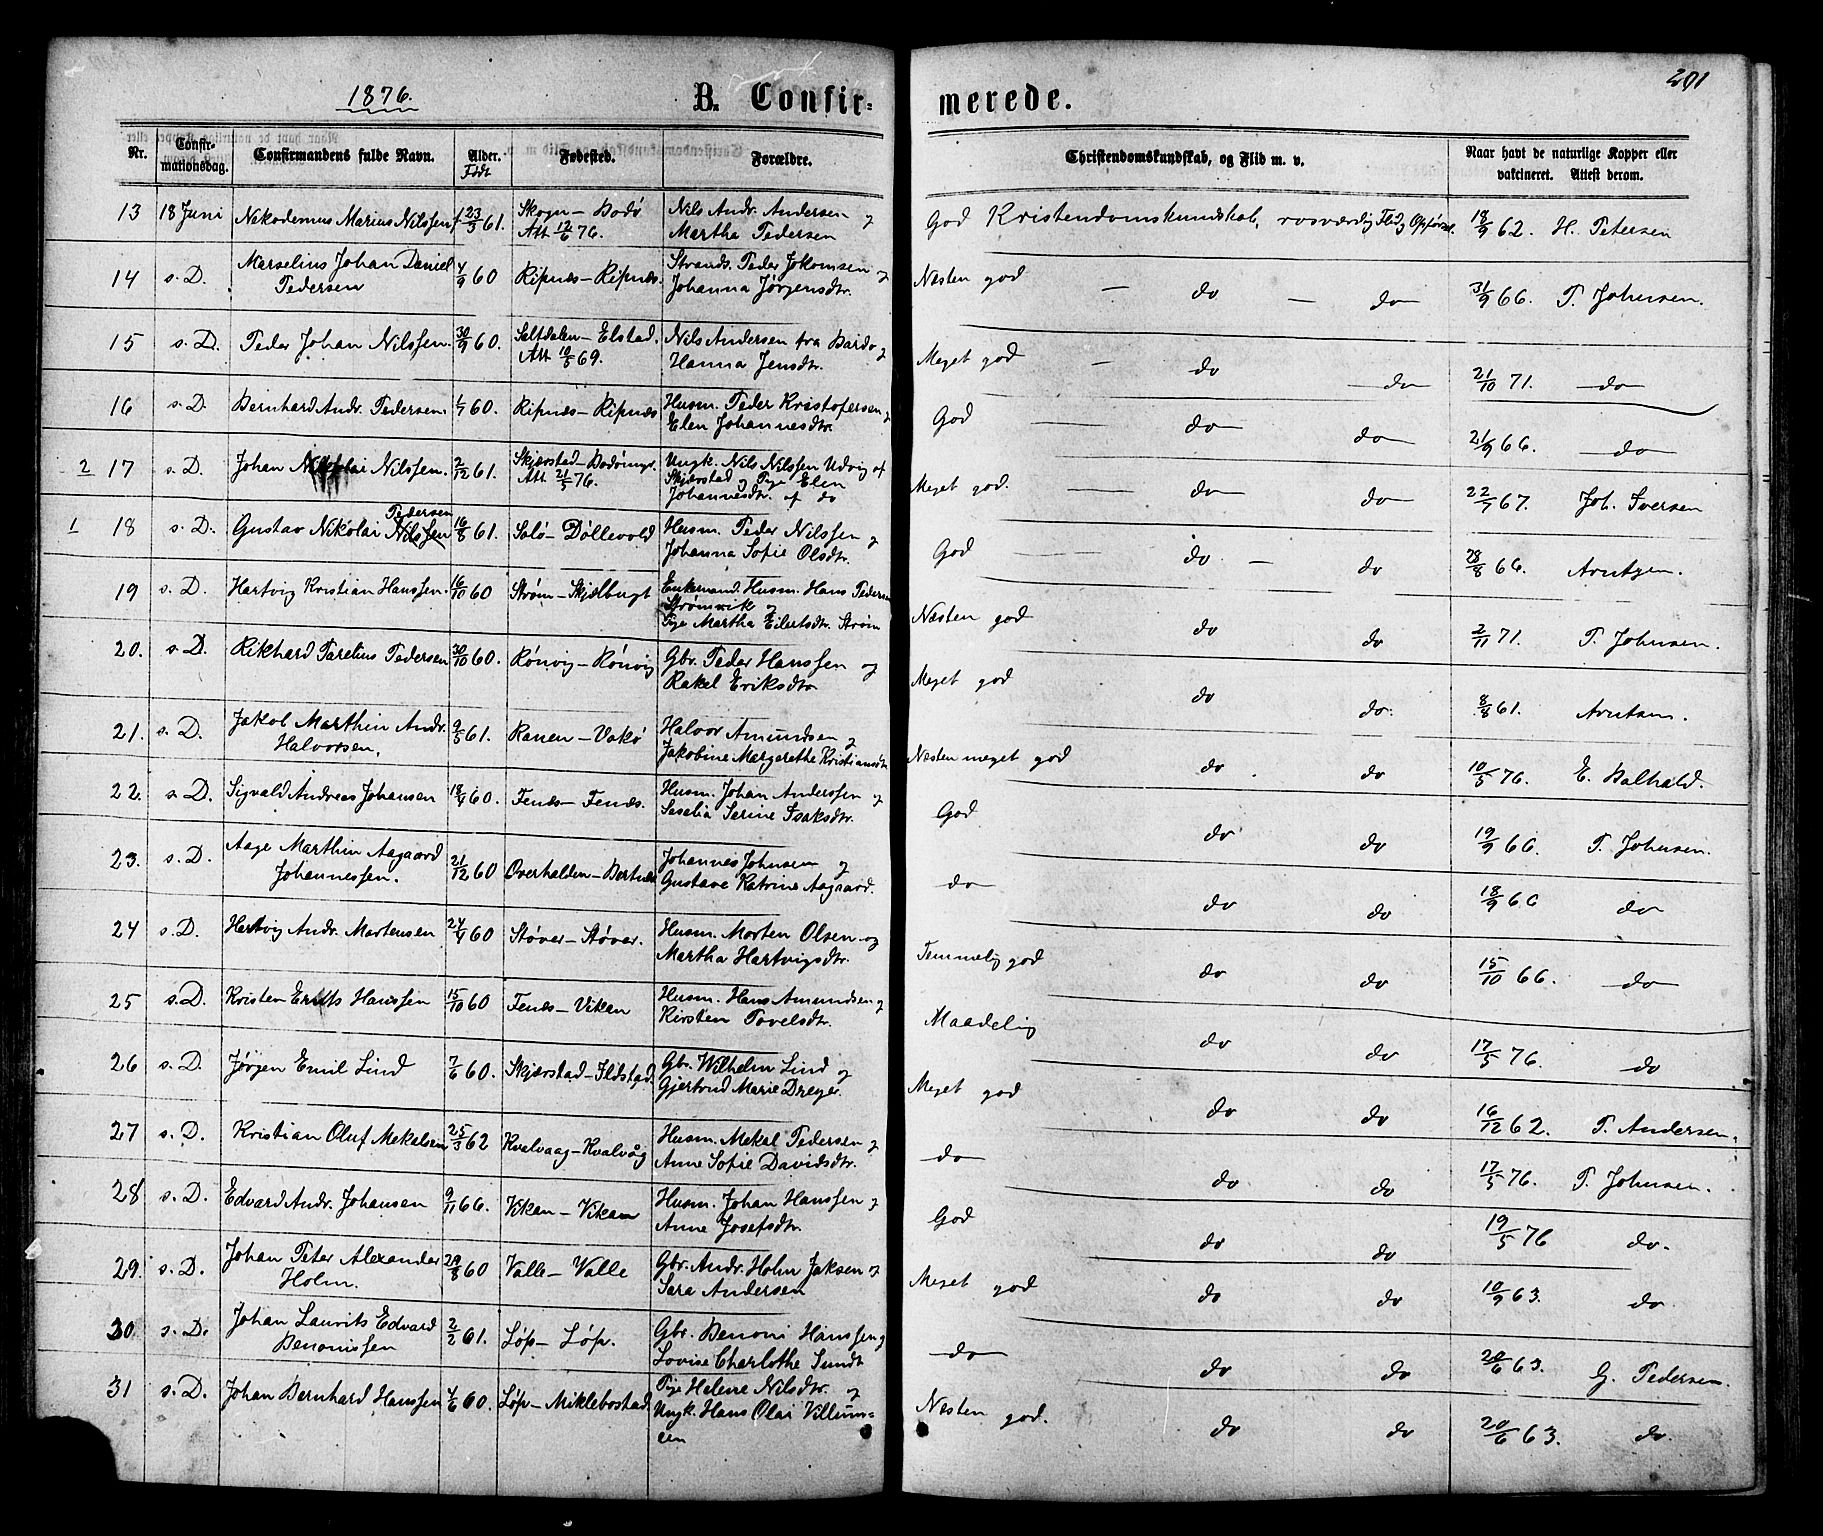 1876.
B. Confir-
merede.
201
Nr.
Confir-
mationsdag.
Confirmandens fulde Navn.
Alder.
Født
Fødested.
Forældre.
Christendomskundskab, og Flid m. v.
Naar havt de naturlige Kopper eller
vakcineret. Attest derom.
13 18 Juni Nekodemus Marius Nilssen 23/3 61. Skogn – Bodø Att 12/6 76. Nils Andr. Andersen og
Martha Pedersen
God Kristendomskundskab, rosværdig Flid, Opførsel. 18/9 62. H. Petersen
14 s. D. Marselius Johan Daniel
Pedersen 4/9 60 Ripnæs – Ripnæs. Strands. Peder Jokomsen og
Johanna Jørgensdtr.
Næsten god – do – do 31/9 66. T. Johnsen.
15 s. D. Peder Johan Nilssen. 30/9 60. Saltdalen – Elstad. Att 10/5 69. Nils Andersen fra Bardo og
Hanna Jensdtr.
Meget god – do – do 21/10 71. do
16 s. D. Bernhard Andr. Pedersen. 1/7 60. Ripnæs – Ripnæs Husm. Peder Kristofersen og
Elen Johannesdtr.
God do do 21/9 66. do
2 17 s. D. Johan Nilssen. 2/12 61. Skjærstad – Bodømgr. Att. 21/5 76. Ungk. Nils Nilssen Udvig af
Skjærstad og Pige Elen
Johannesdtr. af do
Meget god. do do 22/7 67. Joh. Iversen
1 18 s. D. Gustav Nikolai Nilssen Pedersen 16/8 61. Salø – Døllevold Husm. Peder Nilssen og
Johanna Sofie Olsdtr.
God do – do 28/8 66. Arntzen.
19 s. D. Hartvig Kristian Hanssen. 16/10 60 Strøm – Skjælbugt Enkemand Husm. Hans Pedersen
Strømvik og
Pige Martha Eilertsdtr. Strøm
Næsten god do do 2/11 71. T. Johnsen.
20. s. D. Rikhard Parelius Pedersen 30/10 60. Rønvig – Rønvig Gbr. Peder Hanssen og
Rakel Eriksdtr
Meget god do do. 8/8 61. Arntsen.
21. s. D. Jakob Marthin Andr.
Halvorsen. 9/5 61. Ranen – Vakø Halvor Amundsen og
Jakobine Margerethe Kristiansdtr
Næsten meget god do do 10/5 76. E. Balhald.
22. s. D. Sigvald Andreas Johansen 18/4 60. Fenæs – Fenæs. Husm. Johan Anderssen og
Seselia Serine Isaksdtr.
God do do 19/9 66. T. Johnsen.
23. s. D. Aage Marthin Aagaard
Johannessen. 21/12 60 Overhalden – Bertnæs Johannes Johnsen og
Gustave Katrine Aagaard.
do do do 18/9 66 do
24 s. D. Hartvig Andr. Mortensen 24/4 60 Støver – Støver. Husm. Morten Olsen og
Martha Hartvigsdtr.
Temmelig god do do 15/10 66. do
25 s. D. Kristen Hanssen 15/10 60 Fenæs – Vikan Husm. Hans Amundsen og
Kirsten Povelsdtr.
Maadelig do do 17/5 76. do
26 s. D. Jørgen Emil Lind 7/6 60. Skjærstad – Ildstad. Gbr. Wilhelm Lind og
Gjertrud Marie Dreyer.
Meget god do do 16/12 62. T. Andersen.
27 s. D. Kristian Oluf Mekalsen 25/3 62 Kvalvaag – Kvalvåg Husm. Mekal Pedersen og
Anne Sofie Davidsdtr.
do do do 17/5 76. T. Johnsen.
28 s. D. Edvard Andr. Johansen 9/11 66. Vikan – Vikan Husm. Johan Hanssen og
Anne Josefsdtr
God do do 19/5 76 do.
29. s. D. Johan Peter Alexander
Holm. 29/8 60 Valle – Valle Gbr. Andr. Holm Jaksen og
Sara Andersen
Meget god do do 10/9 63. do.
30. s. D. Johan Laurits Edvard
Benonissen 2/2 61. Løp – Løp. Gbr. Benoni Hanssen og
Lovise Charlothe Sundt
do do do 20/6 63. G. Pedersen.
31 s. D. Johan Bernhard Hanssen 4/6 60. Løp – Miklebostad. Pige Helene Nilsdtr. og
Ungk. Hans Olai Villum-
sen
Næsten god. do do 20/6 63. do.